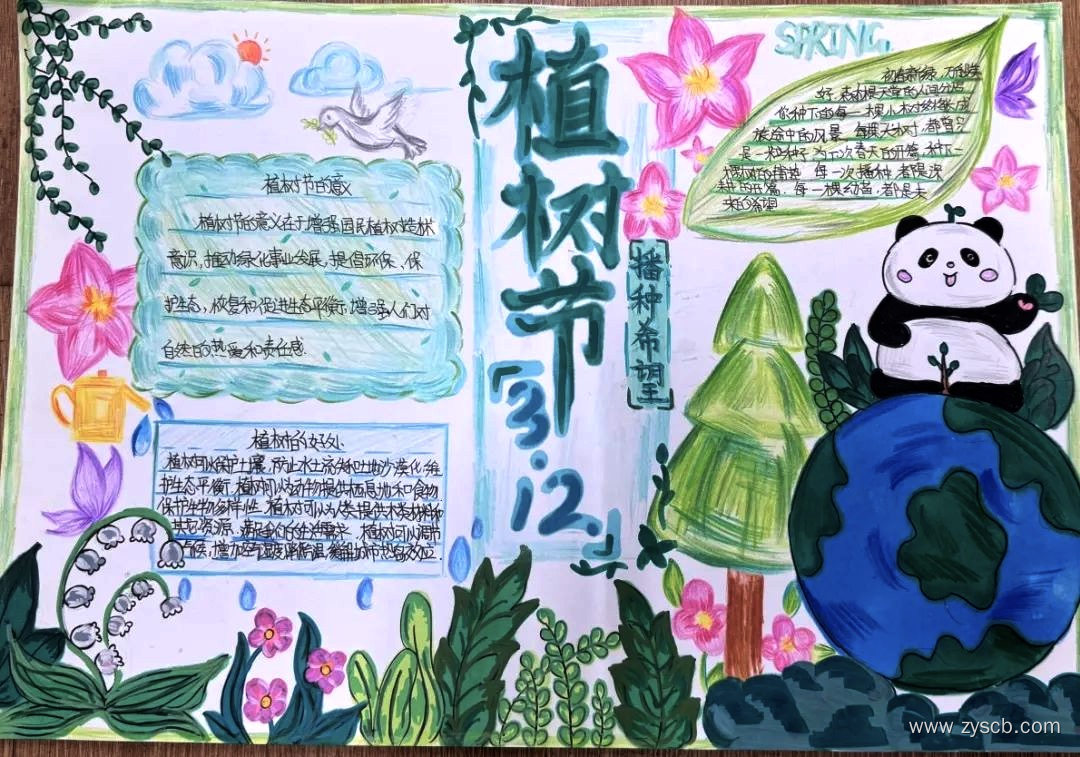 植树节
3.12
播种希望
SPRING.
植树节的意义
植树节的意义在于增强国民植树造林
意识,推动绿化事业发展,提倡环保、保
护生态,恢复和促进生态平衡,增强人们对
自然的热爱和责任感.
植树的好处
植树可以保护土壤,防止水土流失和土地沙漠化,维
护生态平衡.植树可以为动物提供栖息地和食物
保护生物多样性.植树可以为人类提供木类材料和
其它资源,满足人们的生活需求.植树可以调节
气候,增加空气湿度,降低温,缓解城市热岛效应.
初春新绿,万物
好.森林是天堂的人间分
你种下的每一棵小树终将长成
旅途中的风景.每棵大树,都曾只
是一粒种子,为下次春天的开篇,种下一
每一次播种,都是深
耕的开篇,每一棵幼苗,都是未
来的希望
www.zyscb.com